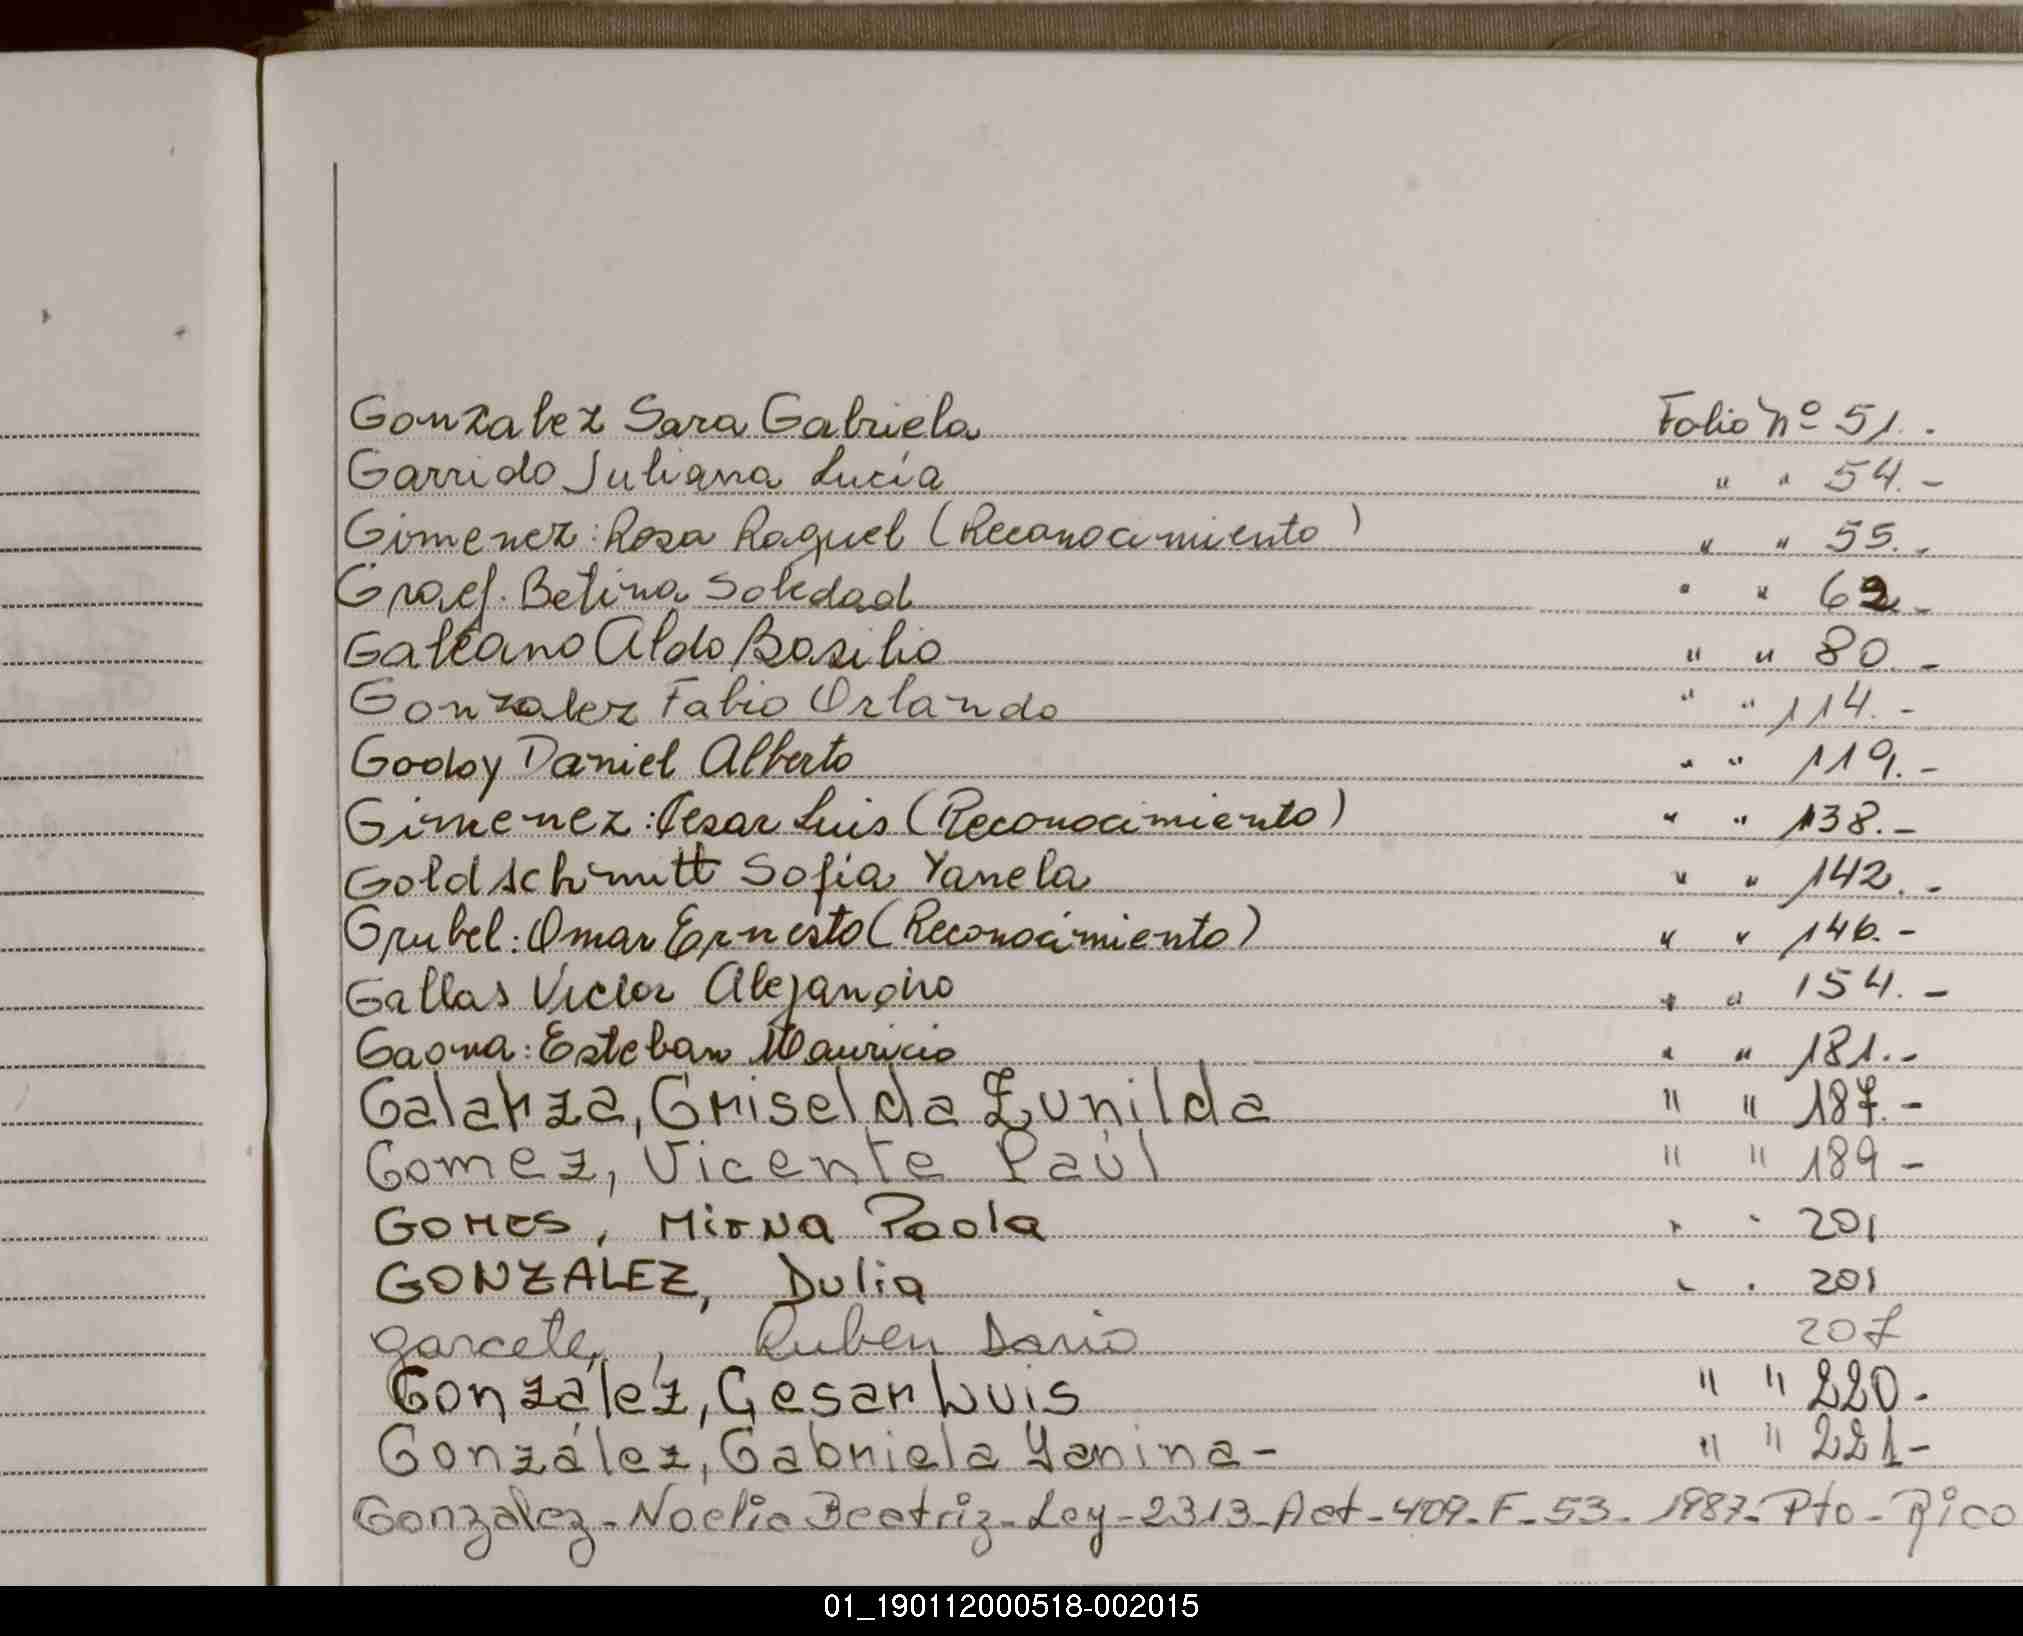 Gonzalez Sara Gabriela Folio Nº 51.-
Garrido Juliana Lucía " " 54.-
Gimenez: Rosa Raquel (Reconocimiento) " " 55.-
Graef. Betina Soledad " " 62.-
Galeano Aldo Basilio " " 80.-
Gonzalez Fabio Orlando " " 114.-
Godoy Daniel Alberto " " 119.-
Gimenez: Cesar Luis (Reconocimiento) " " 138.-
Goldschimitt Sofia Yanela " " 142.-
Grubel: Omar Ernesto (Reconocimiento) " " 146.-
Gallas Victor Alejandro " " 154.-
Gaona: Esteban Mauricio " " 181.-
Galarza, Griselda Zunilda " " 187.-
Gomez, Vicente Paúl " " 189-
GOMES, Mirna Paola " " 201
GONZALEZ, Dulia " " 201
Garcete, Ruben Dario 207
González, Cesar Luis " " 220-
González, Gabriela Yanina- " " 221-
Gonzalez-Noelia Beatriz-Ley-2313-Act-409-F-53-1987-Pto-Rico
01_190112000518-002015